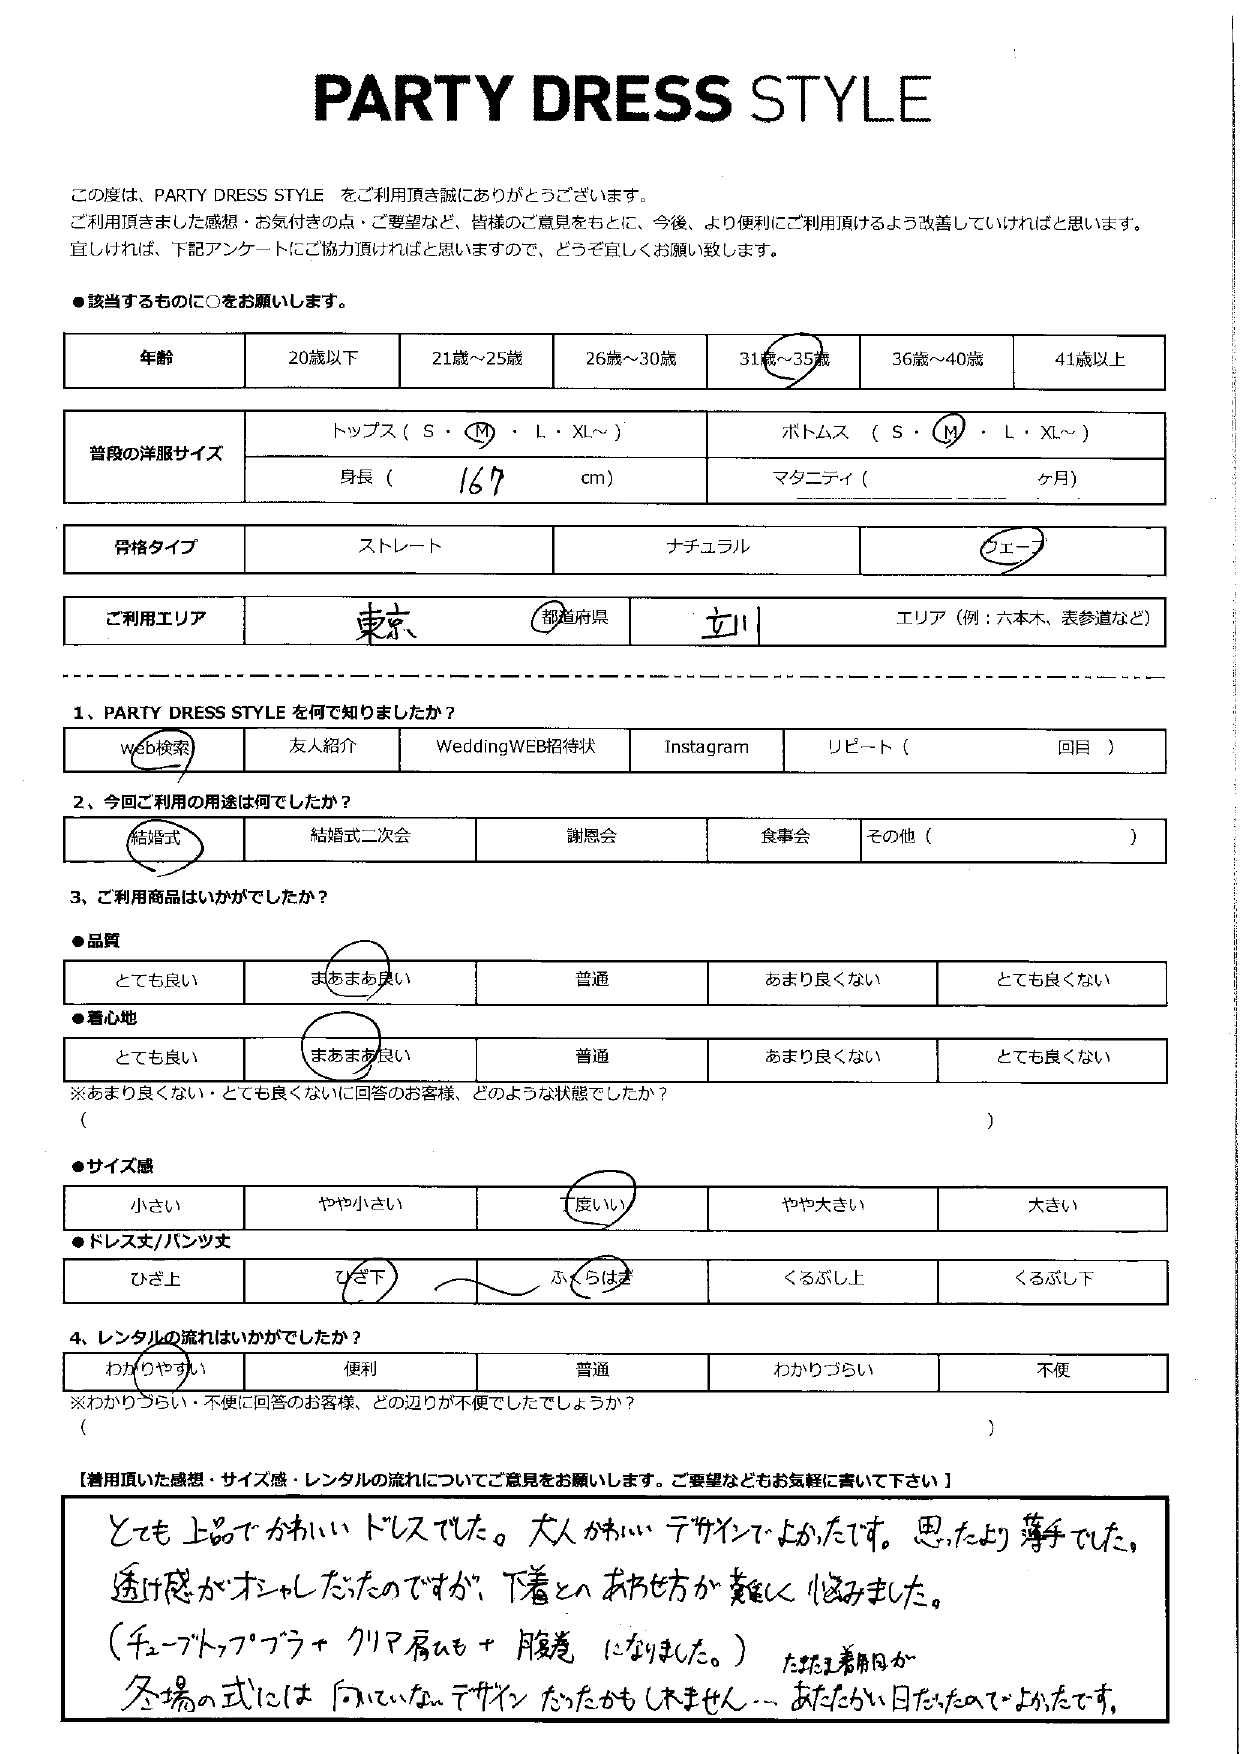 PARTY DRESS STYLE
この度は、PARTY DRESS STYLE をご利用頂き誠にありがとうございます。
ご利用頂きました感想・お気付きの点・ご要望など、皆様のご意見をもとに、今後、より便利にご利用頂けるよう改善していければと思います。
宜しければ、下記アンケートにご協力頂ければと思いますので、どうぞ宜しくお願い致します。
●該当するものに○をお願いします。
年齢 20歳以下 21歳～25歳 26歳～30歳 31歳～35歳 36歳～40歳 41歳以上
普段の洋服サイズ トップス ( S ・ M ・ L ・ XL～ ) ボトムス ( S ・ M ・ L ・ XL～ )
身長 ( 167 cm) マタニティ ( ヶ月)
骨格タイプ ストレート ナチュラル ウェーブ
ご利用エリア 東京 都道府県 立川 エリア（例：六本木、表参道など）
1、PARTY DRESS STYLE を何で知りましたか？
web検索 友人紹介 WeddingWEB招待状 Instagram リピート ( 回目 )
2、今回ご利用の用途は何でしたか？
結婚式 結婚式二次会 謝恩会 食事会 その他 ( )
3、ご利用商品はいかがでしたか？
●品質
とても良い まあまあ良い 普通 あまり良くない とても良くない
●着心地
とても良い まあまあ良い 普通 あまり良くない とても良くない
※あまり良くない・とても良くないに回答のお客様、どのような状態でしたか？
( )
●サイズ感
小さい やや小さい 丁度いい やや大きい 大きい
●ドレス丈/パンツ丈
ひざ上 ひざ下 ～ ふくらはぎ くるぶし上 くるぶし下
4、レンタルの流れはいかがでしたか？
わかりやすい 便利 普通 わかりづらい 不便
※わかりづらい・不便に回答のお客様、どの辺りが不便でしたでしょうか？
( )
【着用頂いた感想・サイズ感・レンタルの流れについてご意見をお願いします。ご要望などもお気軽に書いて下さい 】
とても上品でかわいいドレスでした。大人かわいいデザインでよかったです。思ったより薄手でした。
透け感がオシャレだったのですが、下着とのあわせ方が難しく悩みました。
(チューブトップブラ+クリア肩ひも+腹巻 になりました。) たまたま着用日が
冬場の式には向いていないデザインだったかもしれません… あたたかい日だったのでよかったです。